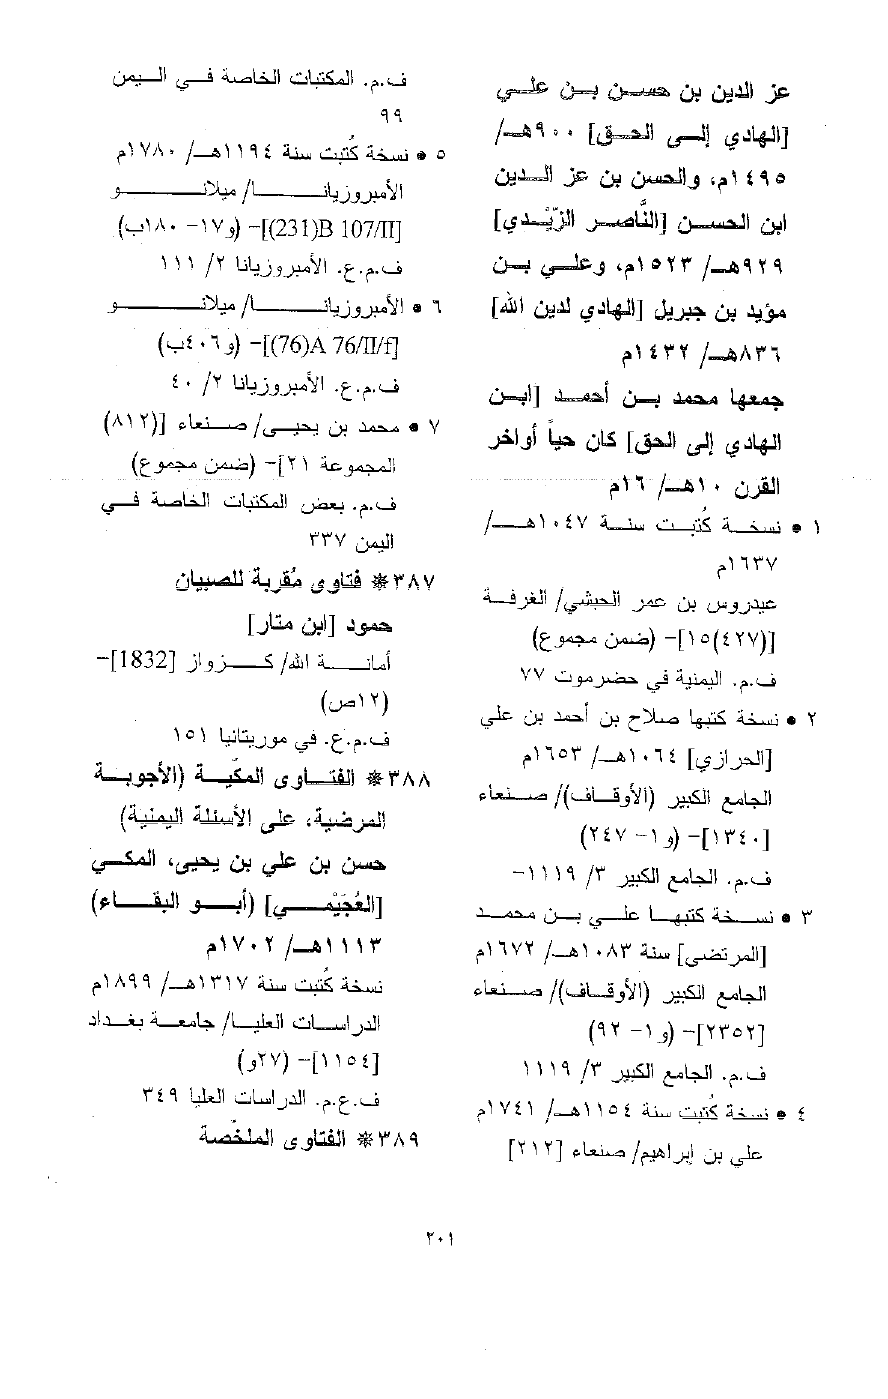 عز الدين بن حسن بن علي
[الهادي إلى الحق] ٩٠٠هـ/
١٤٩٥م، والحسن بن عز الدين
ابن الحسن [النَّاصر الزَّيْدي]
٩٢٩هـ/ ١٥٢٣م، وعلي بن
مؤيد بن جبريل [الهادي لدين الله]
٨٣٦هـ/ ١٤٣٢م
جمعها محمد بن أحمد [ابن
الهادي إلى الحق] كان حياً أواخر
القرن ١٠هـ/ ١٦م
١ • نسخة كُتبت سنة ١٠٤٧هـ/
١٦٣٧م
عيدروس بن عمر الحبشي/ الغرفة
[(٤٢٧)١٥]- (ضمن مجموع)
ف.م. اليمنية في حضرموت ٧٧
٢ • نسخة كتبها صلاح بن أحمد بن علي
[الحرازي] ١٠٦٤هـ/ ١٦٥٣م
الجامع الكبير (الأوقاف)/ صنعاء
[١٣٤٠]- (و١- ٢٤٧)
ف.م. الجامع الكبير ٣/ ١١١٩-
٣ • نسخة كتبها علي بن محمد
[المرتضى] سنة ١٠٨٣هـ/ ١٦٧٢م
الجامع الكبير (الأوقاف)/ صنعاء
[٢٣٥٢]- (و١- ٩٢)
ف.م. الجامع الكبير ٣/ ١١١٩
٤ • نسخة كُتبت سنة ١١٥٤هـ/ ١٧٤١م
علي بن إبراهيم/ صنعاء [٢١٢]
ف.م. المكتبات الخاصة في اليمن
٩٩
٥ • نسخة كُتبت سنة ١١٩٤هـ/ ١٧٨٠م
الأمبروزيانا/ ميلانو
[B 107/II(231)]- (و١٧- ١٨٠ب)
ف.م.ع. الأمبروزيانا ٢/ ١١١
٦ • الأمبروزيانا/ ميلانو
[A 76/II/f(76)]- (و٤٠٦ب)
ف.م.ع. الأمبروزيانا ٢/ ٤٠
٧ • محمد بن يحيى/ صنعاء [(٨١٢)
المجموعة ٢١]- (ضمن مجموع)
ف.م. بعض المكتبات الخاصة في
اليمن ٣٣٧
٣٨٧❋ فتاوى مُقربة للصبيان
حمود [ابن متار]
أمانة الله/ كزواز [1832]-
(١٢ص)
ف.م.ع. في موريتانيا ١٥١
٣٨٨❋ الفتاوى المكّية (الأجوبة
المرضية، على الأسئلة اليمنية)
حسن بن علي بن يحيى، المكي
[العُجَيْمي] (أبو البقاء)
١١١٣هـ/ ١٧٠٢م
نسخة كُتبت سنة ١٣١٧هـ/ ١٨٩٩م
الدراسات العليا/ جامعة بغداد
[١١٥٤]- (٢٧و)
ف.ع.م. الدراسات العليا ٣٤٩
٣٨٩❋ الفتاوى الملخّصة
٢٠١